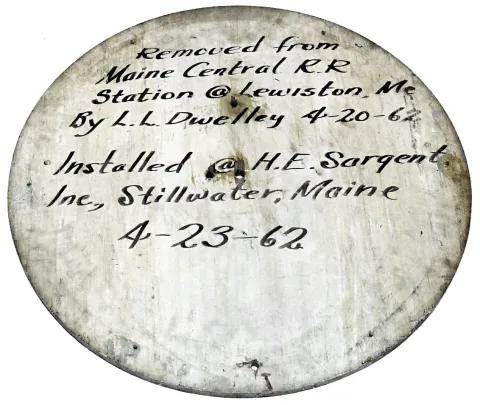 Removed from
Maine Central R.R
Station @ Lewiston, Me
By L.L. Dwelley 4-20-62
Installed @ H.E. Sargent
Inc., Stillwater, Maine
4-23-62